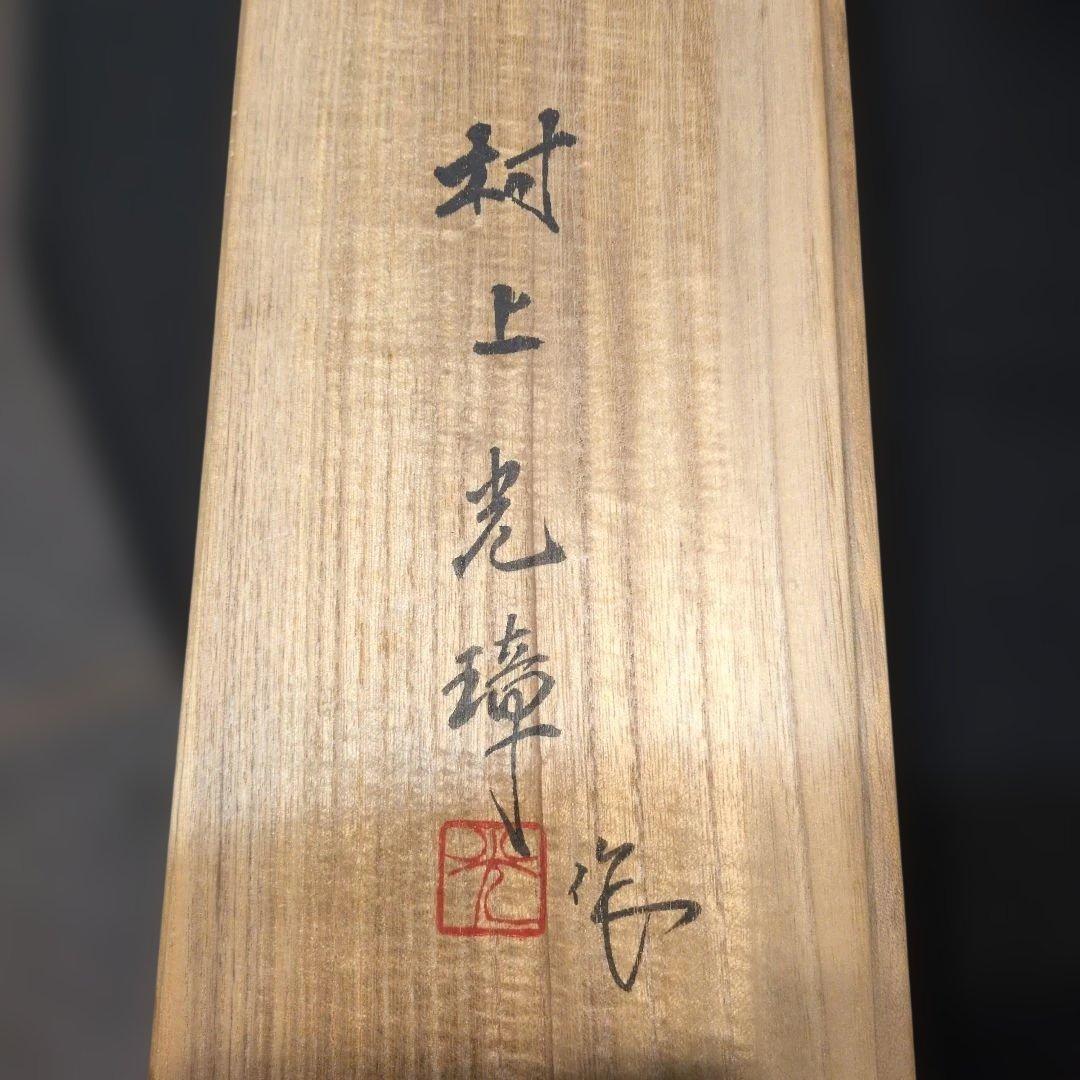 村上光璋
作
光